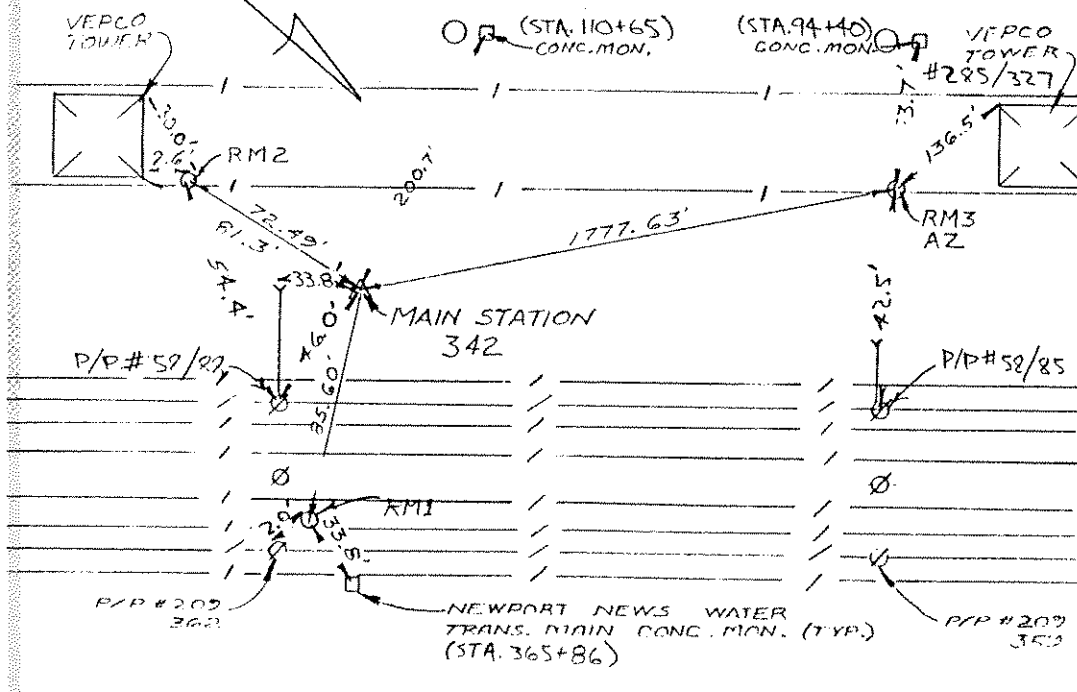 VEPCO
TOWER
(STA. 110+65)
CONC. MON.
(STA. 94+40)
CONC. MON.
VEPCO
TOWER
#285/327
136.5'
RM2
200.7'
72.49'
1777.63'
RM3
AZ
54.4'
33.8'
46.0'
MAIN STATION
342
42.5'
P/P# 58/85
35.60'
RM1
33.5'
P/P #209
NEWPORT NEWS WATER
TRANS. MAIN CONC. MON. (TYP.)
(STA. 365+86)
P/P #209